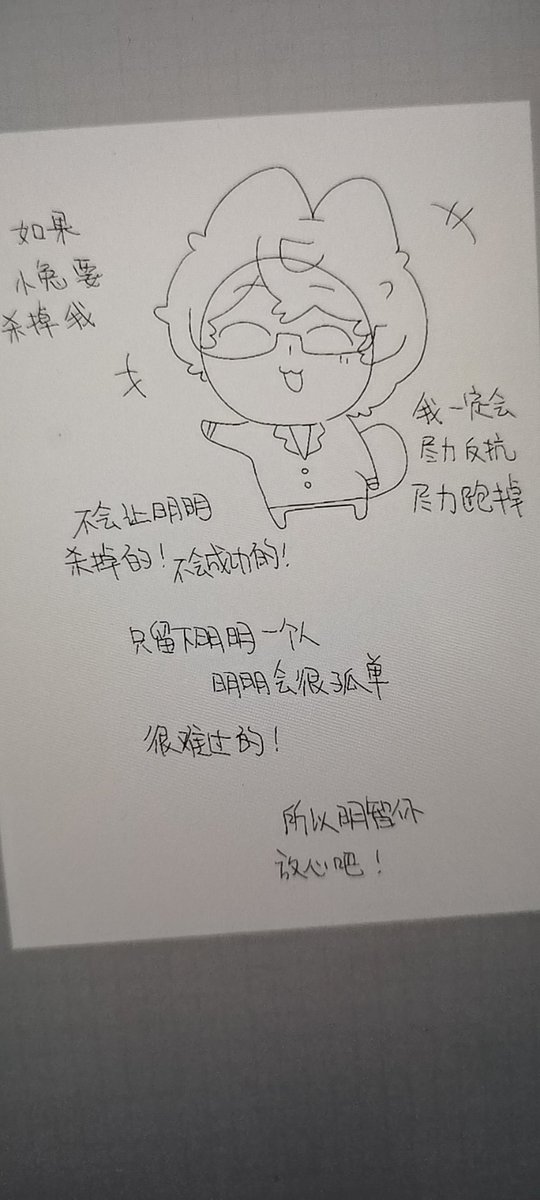 如果
小兔要
杀掉我
我一定会
尽力反抗
尽力跑掉
不会让明明
杀掉的！不会成功的！
只留下明明一个人
明明会很孤单
很难过的！
所以明智你
放心吧！